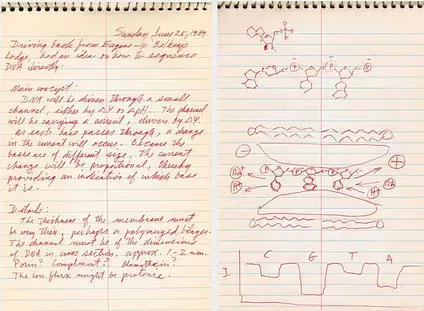 Sunday June 25, 1989.
Driving back from Eugene → Belknap
Lodge, had an idea on how to sequence
DNA directly:
Main concept:
DNA will be driven through a small
channel, either by ΔΨ or ΔpH. The channel
will be carrying a current, driven by ΔΨ.
As each base passes through, a change
in the current will occur. Because the
bases are of different size, the current
change will be proportional, thereby
providing an indication of which base
it is.
Details:
The thickness of the membrane must
be very thin, perhaps a polymerized bilayer.
The channel must be of the dimensions
of DNA in cross section, approx. 1-2 nm.
Porin? Complement? Alamethicin?
The ion flux might be protonic.
P P P
− +
Na+ Na+
H+ H+
I C G T A